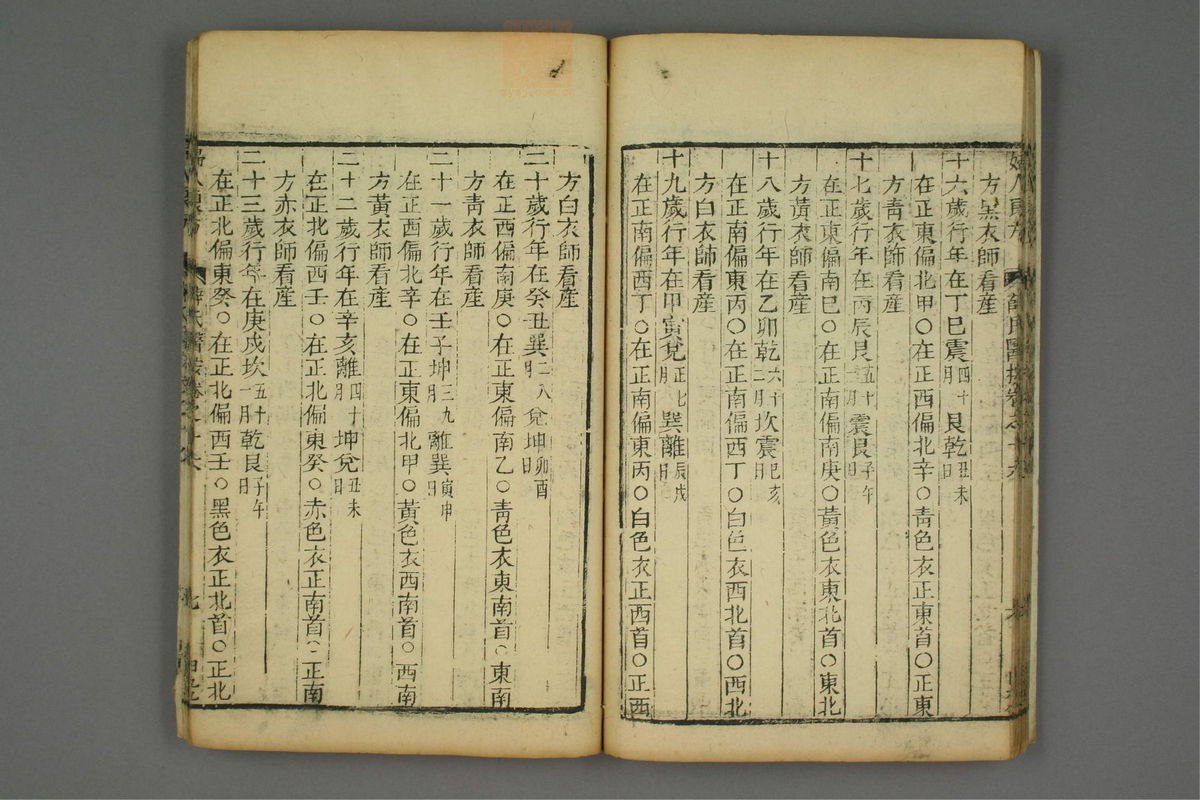 方黑衣師看産
十六歲行年在丁巳震四十月艮乾丑未日
在正東偏北甲○在正西偏北辛○靑色衣正東首○正東
方靑衣師看産
十七歲行年在丙辰艮五十一月震艮子午日
在正東偏南巳○在正西偏南庚○黃色衣東北首○東北
方黃衣師看産
十八歲行年在乙卯乾六十二月坎震巳亥日
在正南偏東丙○在正南偏西丁○白色衣西北首○西北
方白衣師看産
十九歲行年在甲寅兌正七月巽離辰戌日
在正南偏西丁○在正南偏東丙○白色衣正西首○正西
方白衣師看産
二十歲行年在癸丑巽二八月兌坤卯酉日
在正西偏南庚○在正東偏南乙○靑色衣東南首○東南
方靑衣師看産
二十一歲行年在壬子坤三九月離巽寅申日
在正西偏北辛○在正東偏北甲○黃色衣西南首○西南
方黃衣師看産
二十二歲行年在辛亥離四十月坤兌丑未日
在正北偏西壬○在正北偏東癸○赤色衣正南首○正南
方赤衣師看産
二十三歲行年在庚戌坎五十一月乾艮子午日
在正北偏東癸○在正北偏西壬○黑色衣正北首○正北